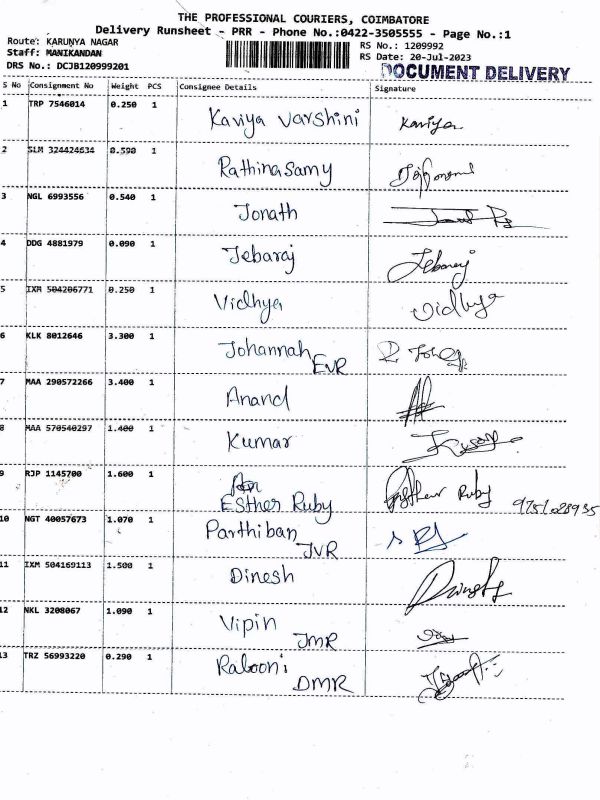 THE PROFESSIONAL COURIERS, COIMBATORE
Delivery Runsheet - PRR - Phone No.:0422-3505555 - Page No.:1
Route: KARUNYA NAGAR RS No.: 1209992
Staff: MANIKANDAN RS Date: 20-Jul-2023
DRS No.: DCJB120999201 DOCUMENT DELIVERY
S No Consignment No Weight PCS Consignee Details Signature
1 TRP 7546014 0.250 1 Kaviya Varshini Kaviya
2 SLM 324424634 0.590 1 Rathinasamy
3 NGL 6993556 0.540 1 Jonath
4 DDG 4881979 0.090 1 Jebaraj Jebaraj
5 IXM 504206771 0.250 1 Vidhya Vidhya
6 KLK 8012646 3.300 1 Johannah
EVR
7 MAA 290572266 3.400 1 Anand
8 MAA 570540297 1.400 1 Kumar
9 RJP 1145700 1.600 1
Esther Ruby Esther Ruby 9751028935
10 NGT 40057673 1.070 1 Parthiban
JVR
11 IXM 504169113 1.500 1 Dinesh
12 NKL 3208067 1.090 1 Vipin
JMR
13 TRZ 56993220 0.290 1 Rabooni
DMR